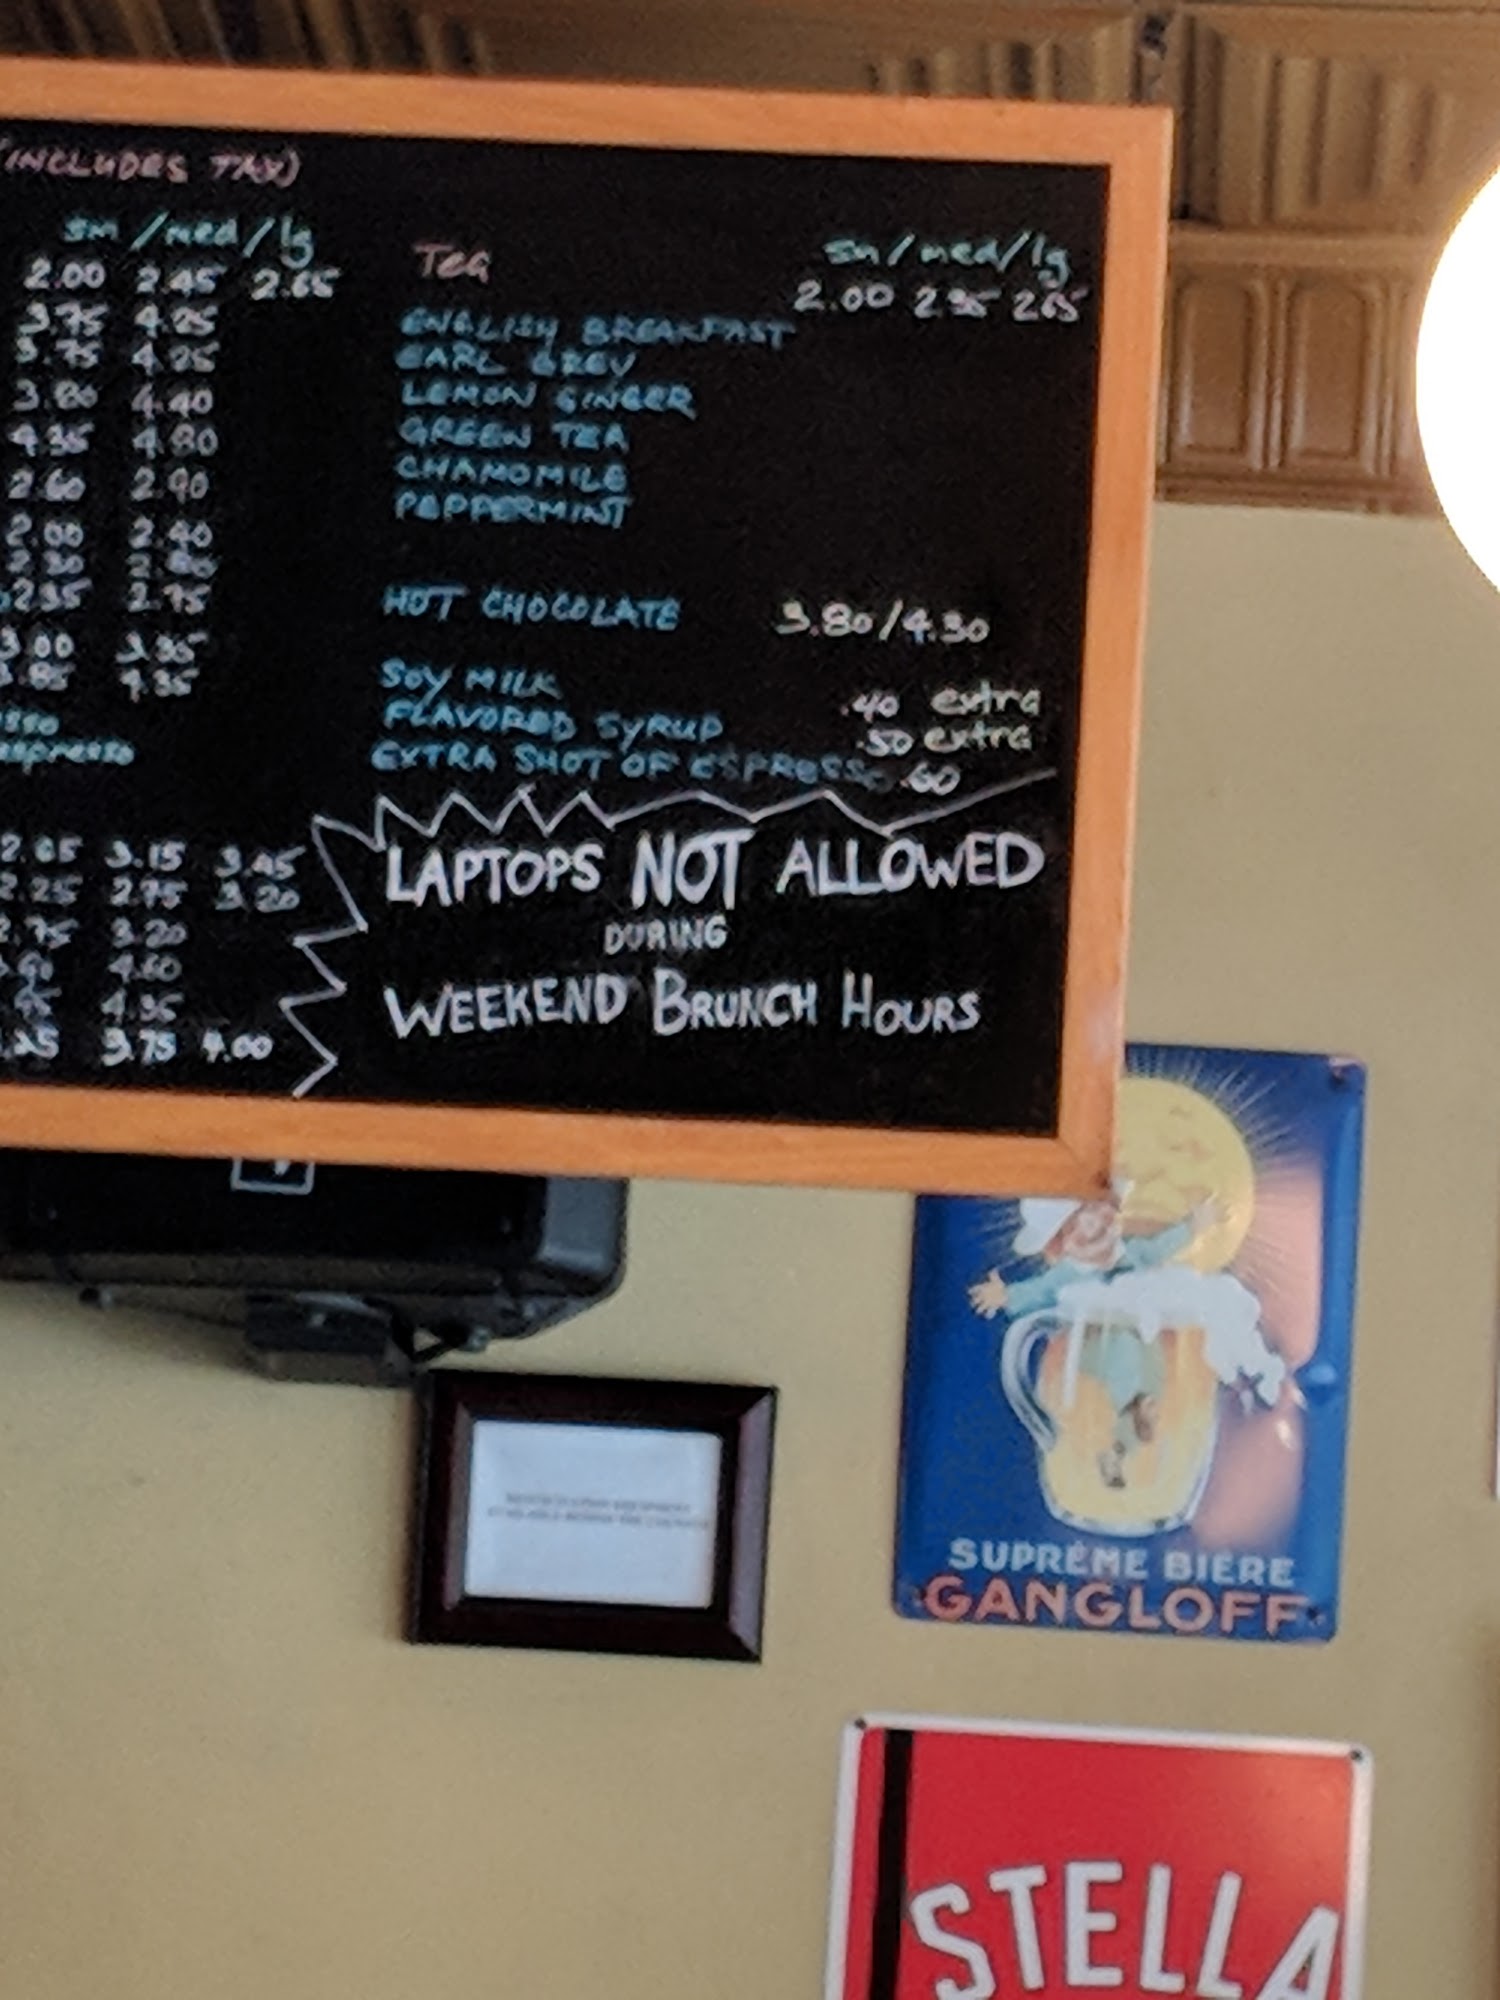 (INCLUDES TAX)
sm/med/lg
2.00 2.45 2.65
3.75 4.25
3.75 4.25
3.80 4.40
4.35 4.80
2.60 2.90
2.00 2.40
2.30
2.35 2.75
3.00 3.35
4.35
espresso
3.15 3.45
2.25 2.75 3.20
2.75 3.20
4.60
4.35
3.75 4.00
Tea sm/med/lg
2.00 2.35 2.65
ENGLISH BREAKFAST
EARL GREY
LEMON GINGER
GREEN TEA
CHAMOMILE
PEPPERMINT
HOT CHOCOLATE 3.80/4.30
SOY MILK .40 extra
FLAVORED SYRUP .50 extra
EXTRA SHOT OF ESPRESSO .60
LAPTOPS NOT ALLOWED
DURING
WEEKEND BRUNCH HOURS
SUPRÊME BIÈRE
GANGLOFF
STELLA